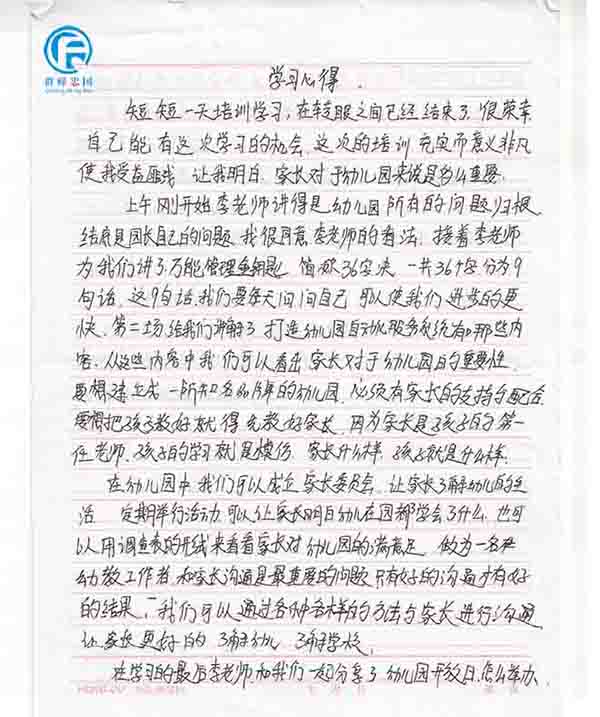 群师忠国
学习心得.
短短一天培训学习,在转眼之间已经结束了,很荣幸
自己能有这次学习的机会.这次的培训充实而意义非凡
使我受益匪浅 让我明白,家长对于幼儿园来说是多么重要.
上午刚开始李老师讲得是幼儿园所有的问题,归根
结底是园长自己的问题,我很同意李老师的看法,接着李老师
为我们讲了万能管理金钥匙 简称36字决 一共36个字分为9
句话,这9句话,我们要每天问问自己 可以使我们进步的更
快.第二场给我们讲解了打造幼儿园自动化服务系统有那些内
容.从这些内容中我们可以看出家长对于幼儿园的重要性.
要想建立成一所知名品牌的幼儿园,必须有家长的支持与配合
要想把孩子教好就得先教好家长,因为家长是孩子的第一
任老师.孩子的学习就是模仿,家长什么样,孩子就是什么样.
在幼儿园中,我们可以成立家长委员会.让家长了解幼儿的生
活 定期举行活动,可以让家长明白幼儿在园都学会了什么,也可
以用调查表的形式来看看家长对幼儿园的满意足,做为一名
幼教工作者,和家长沟通是最重要的问题,只有好的沟通才有好
的结果,我们可以通过各种各样的方法与家长进行沟通
让家长更好的了解幼儿,了解学校.
在学习的最后李老师和我们一起分享了幼儿园开放日,怎么举办,